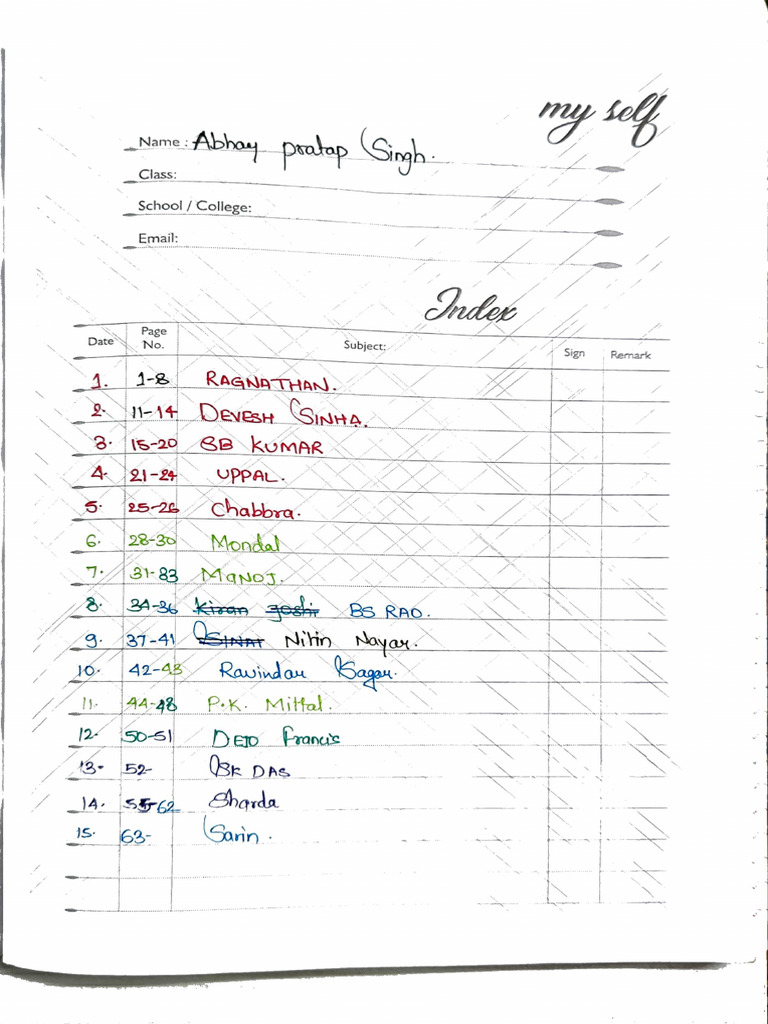 my self
Name : Abhay pratap Singh.
Class:
School / College:
Email:
Index
Date Page No. Subject: Sign Remark
1. 1-8 RAGNATHAN.
2. 11-14 DEVESH SINHA.
3. 15-20 SB KUMAR
4. 21-24 UPPAL.
5. 25-26 Chabbra.
6. 28-30 Mondal
7. 31-33 MANOJ.
8. 34-36 kiran joshi BS RAO.
9. 37-41 SINAT Nitin Nayar.
10. 42-43 Ravindar Sagar.
11. 44-48 P.K. Mittal.
12. 50-51 DEJO Francis
13. 52- SK DAS
14. 55-62 Sharda
15. 63- Sarin.